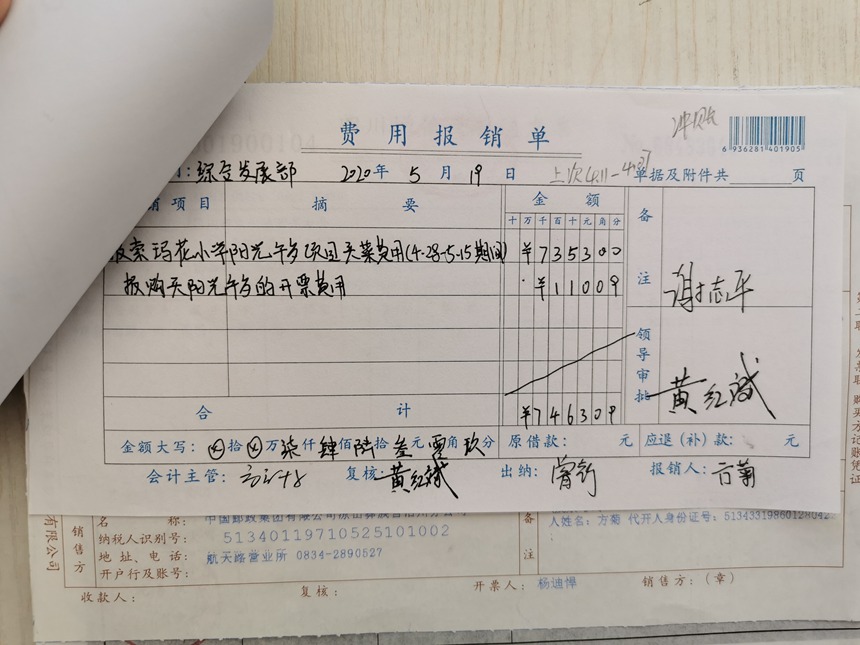 冲账
6 936281 401905
费用报销单
综合发展部 2020年 5月 19日 上次4.11-4.27 单据及附件共 页
销项目 摘要 金额 备注
十万千百十元角分
报索玛花小学阳光午岁项目买菜费用(4.28-5.15期间) ¥735300
报购买阳光午岁的开票费用 ¥11009
谢志平
领导审批
黄红斌
合计 ¥746309
金额大写: ⊗拾⊗万柒仟肆佰陆拾叁元零角玖分 原借款: 元 应退(补)款: 元
会计主管: 复核: 黄红斌 出纳: 报销人: 方菊
有限公司
销售方
名称: 中国邮政集团有限公司凉山彝族自治州分公司
纳税人识别号: 51340119710525101002
地址、电话: 航天路营业所 0834-2890527
开户行及账号:
备注
人姓名: 方菊 代开人身份证号: 513433198601280427
收款人: 复核: 开票人: 杨迪惮 销售方: (章)